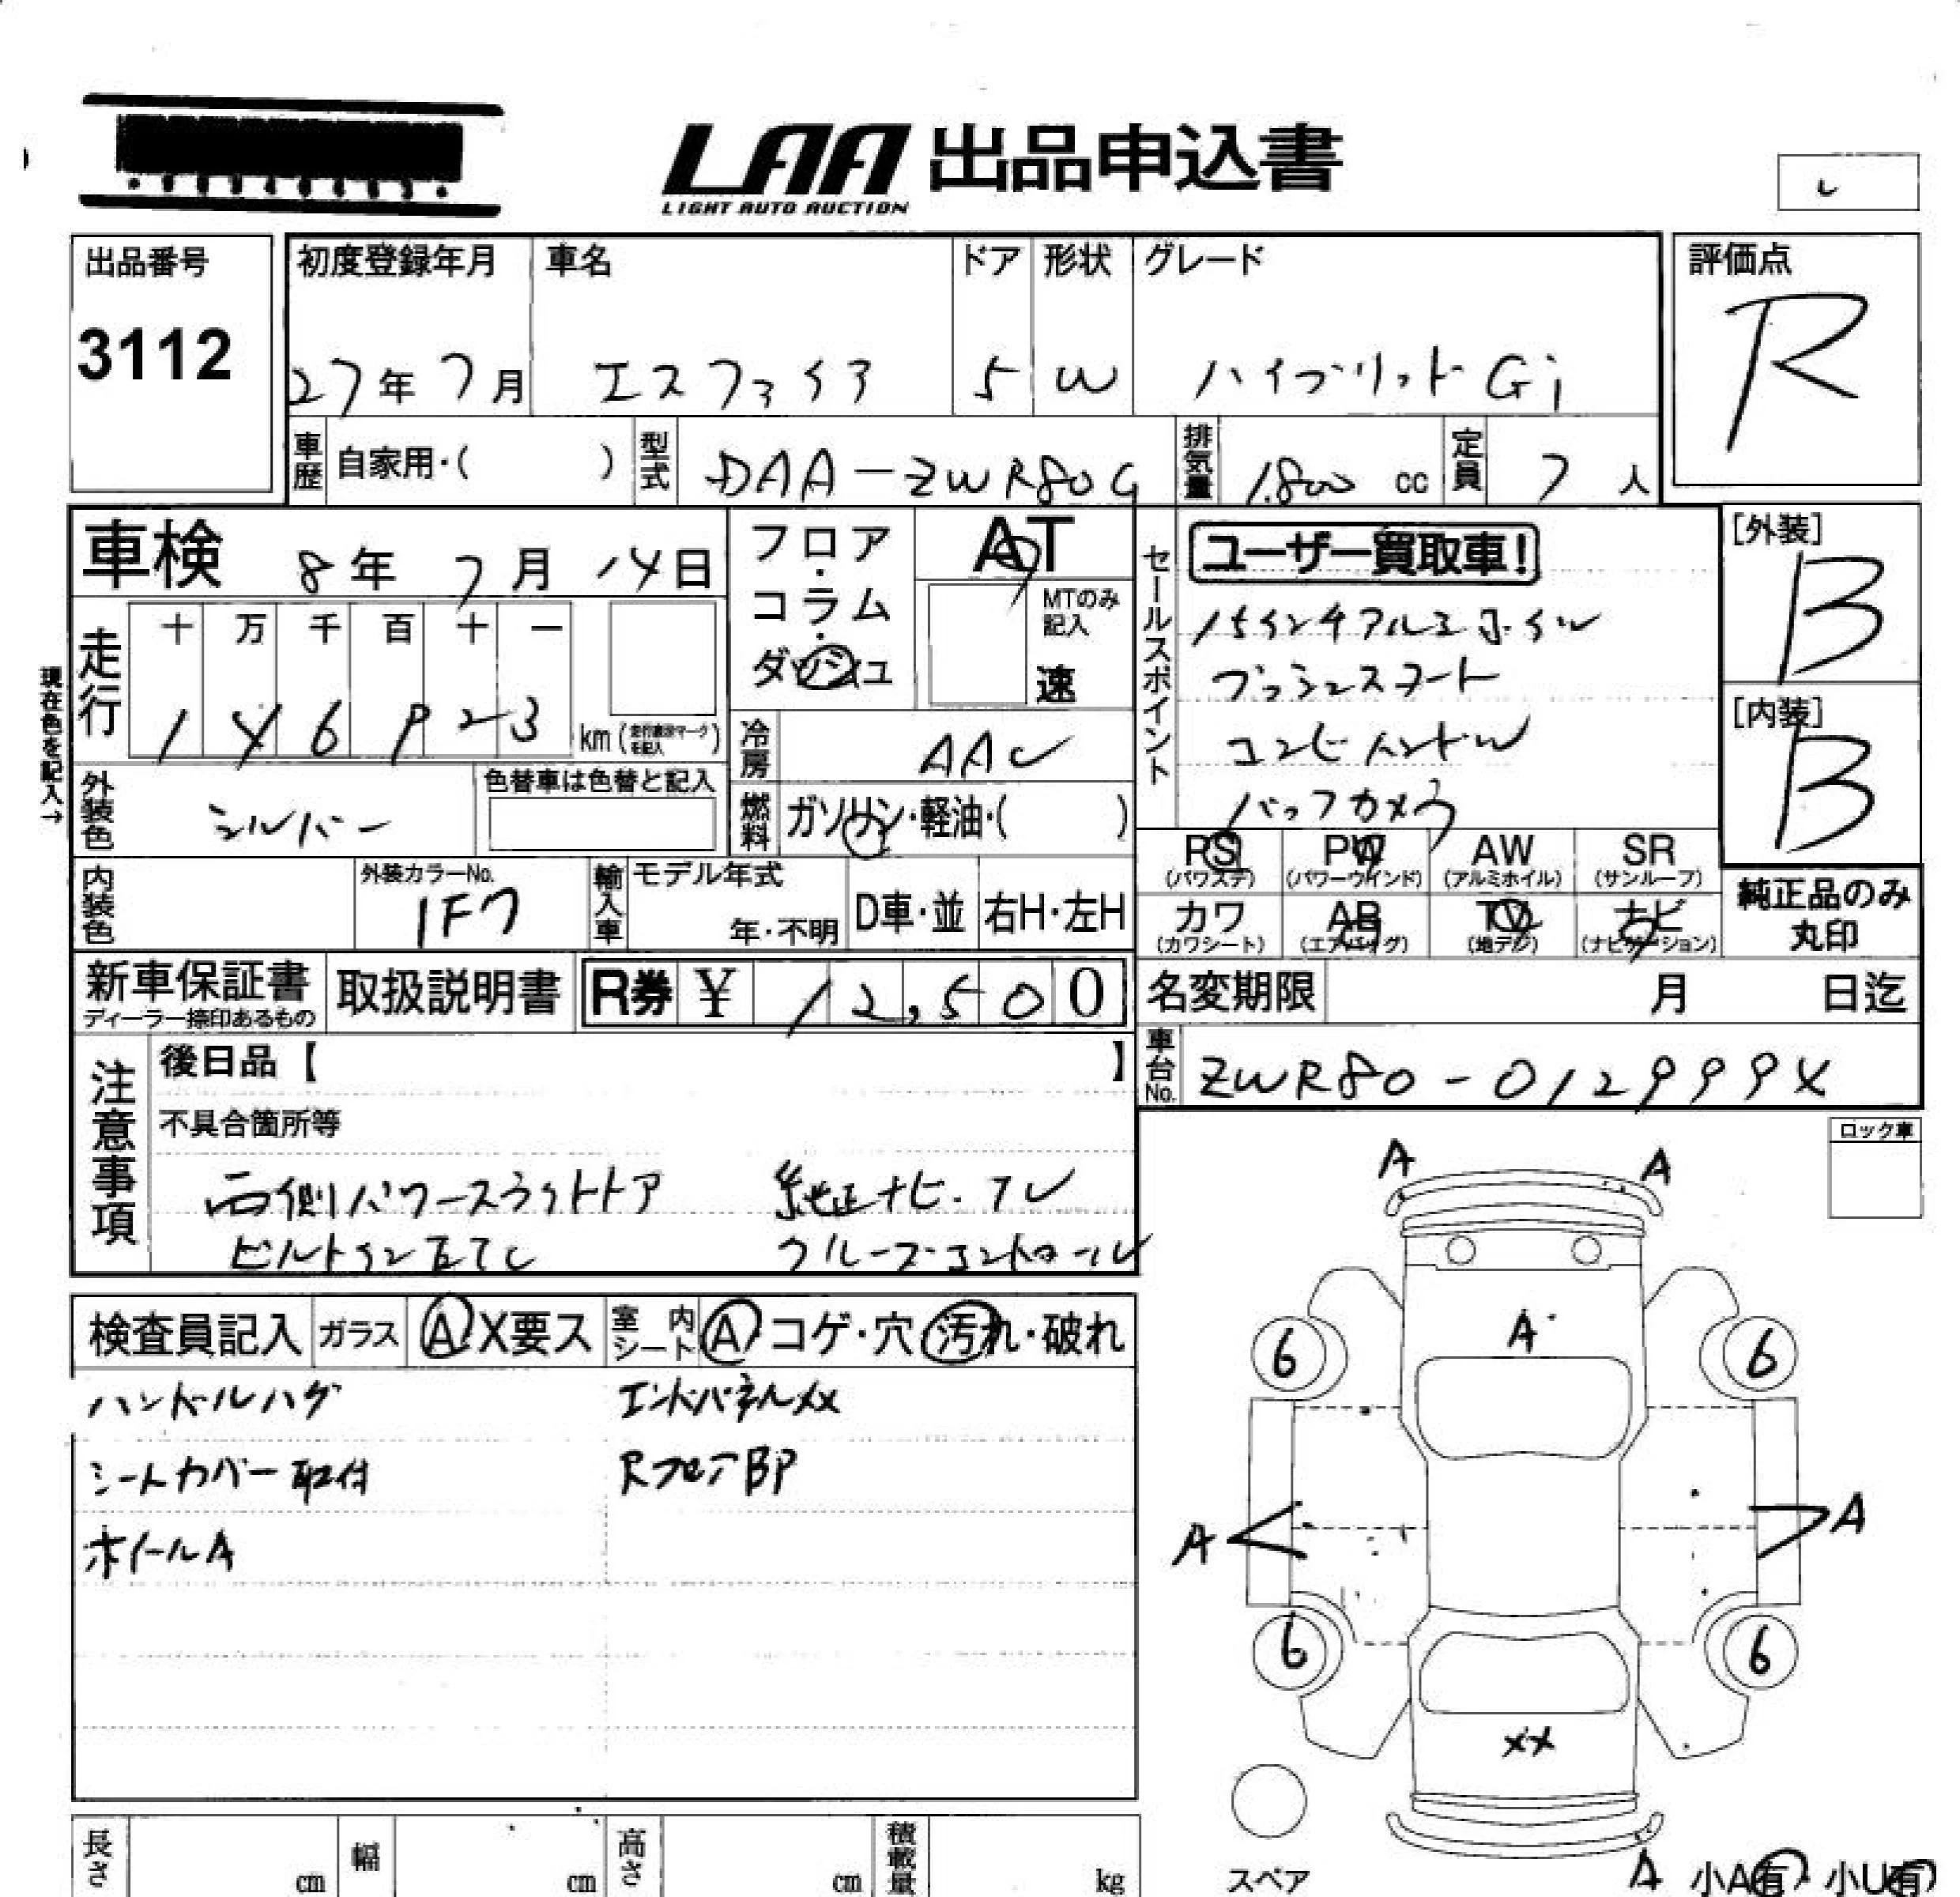 LAA 出品申込書
LIGHT AUTO AUCTION
出品番号
3112
初度登録年月
27年7月
車名
エスクァイア
ドア
5
形状
W
グレード
ハイブリット Gi
評価点
R
車歴 自家用・( )
型式 DAA-ZWR80G
排気量 1,800 cc
定員 7 人
車検 8年7月14日
フロア・コラム・ダッシュ
AT
MTのみ記入
速
走行
十 万 千 百 十 一
1 4 6 9 2 3 km (走行表示マークを記入)
現在色を記入→
冷房 AAC
外装色 シルバー
色替車は色替と記入
燃料 ガソリン・軽油・( )
内装色
外装カラーNo.
1F7
輸入車
モデル年式
年・不明
D車・並
右H・左H
セールスポイント
ユーザー買取車!
15インチアルミホイル
プッシュスタート
コンビハンドル
バックカメラ
[外装]
B
[内装]
B
PS (パワステ)
PW (パワーウインド)
AW (アルミホイル)
SR (サンルーフ)
カワ (カワシート)
AB (エアバイグ)
TV (地デジ)
ナビ (ナビゲーション)
純正品のみ
丸印
新車保証書
ディーラー捺印あるもの
取扱説明書
R券 ¥ 12,500
名変期限 月 日迄
車台No. ZWR80-0129994
注意事項
後日品【 】
不具合箇所等
両側パワースライドドア 純正ナビ・TV
ビルトインETC クルーズコントロール
ロック車
検査員記入
ガラス A・X要ス
室内シート A・コゲ・穴・汚れ・破れ
ハンドルハゲ エンドパネルXX
シートカバー取付 RフロアBP
ホイールA
A A
A
6 6
A A
6 6
XX
スペア
A 小A有・小U有
長さ cm
幅 cm
高さ cm
積載量 kg